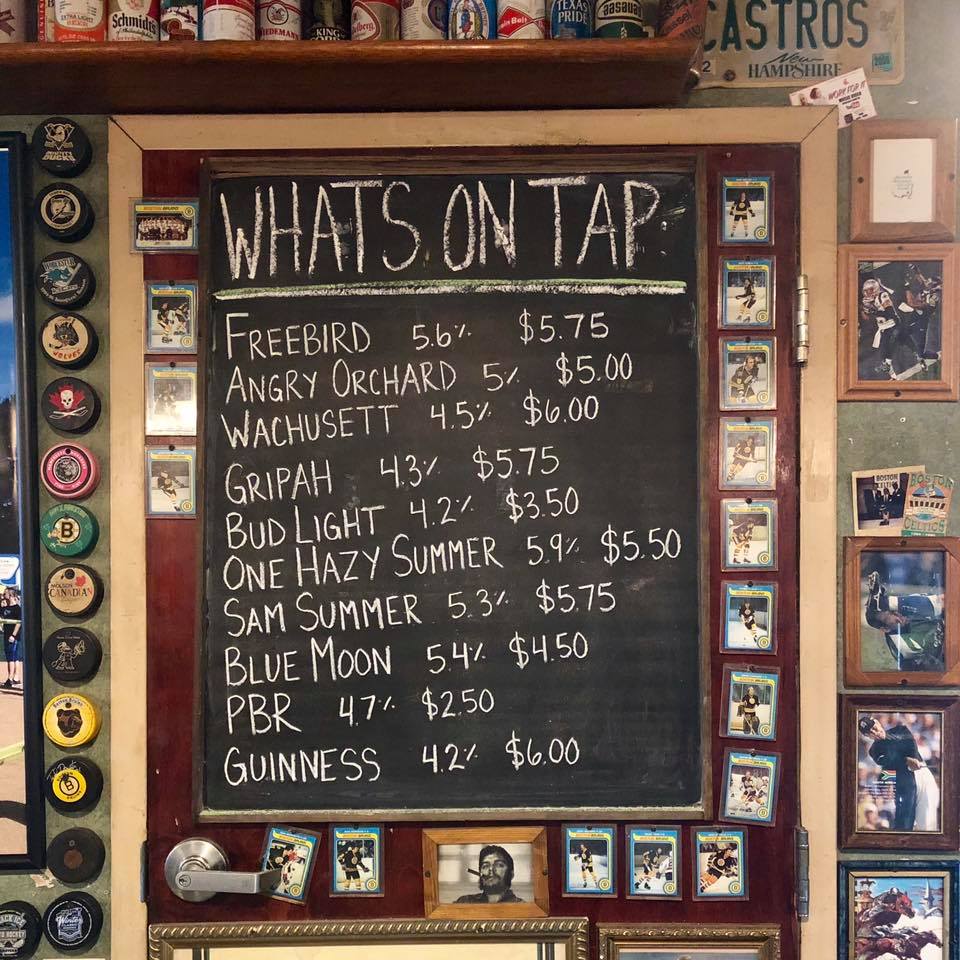 Schmidt's
TEXAS
PRIDE
CASTROS
New
HAMPSHIRE
WORK FOR IT
WHATS ON TAP
FREEBIRD 5.6% $5.75
ANGRY ORCHARD 5% $5.00
WACHUSETT 4.5% $6.00
GRIPAH 4.3% $5.75
BUD LIGHT 4.2% $3.50
ONE HAZY SUMMER 5.9% $5.50
SAM SUMMER 5.3% $5.75
BLUE MOON 5.4% $4.50
PBR 4.7% $2.50
GUINNESS 4.2% $6.00
MOLSON
CANADIAN
BOSTON
BOSTON
CELTICS